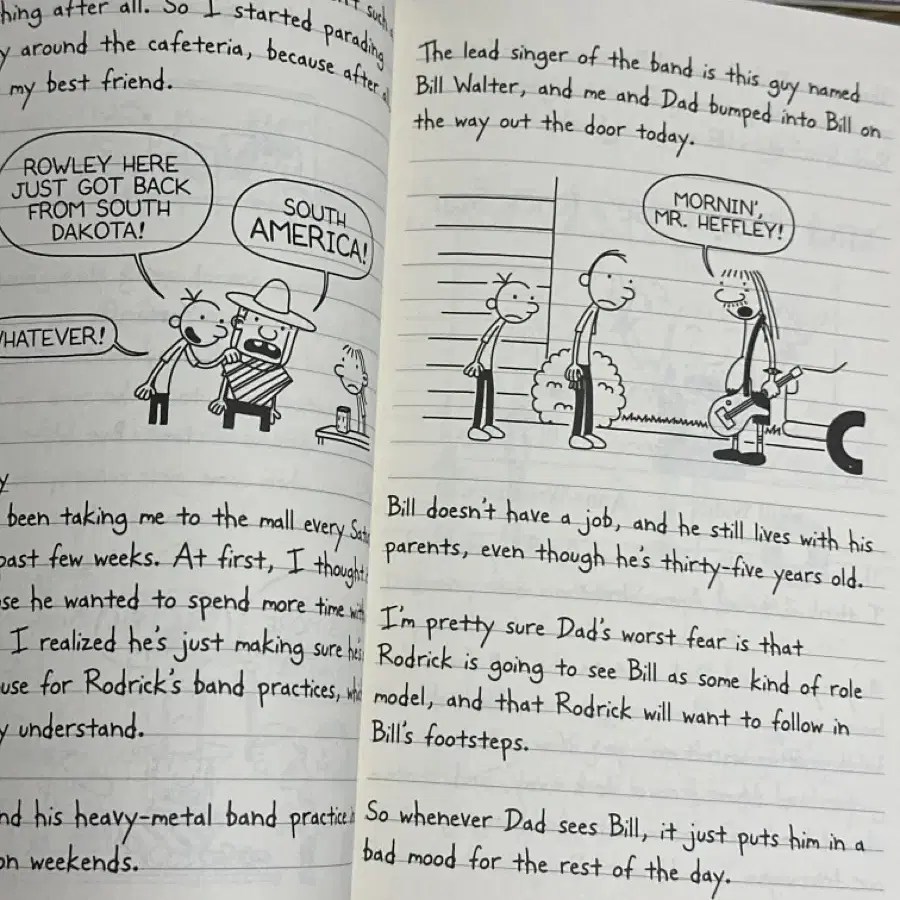 hing after all. So I started parading
around the cafeteria, because after
my best friend.
ROWLEY HERE
JUST GOT BACK
FROM SOUTH
DAKOTA!
SOUTH
AMERICA!
WHATEVER!
been taking me to the mall every Sat
past few weeks. At first, I thought
se he wanted to spend more time with
I realized he's just making sure he's
use for Rodrick's band practices,
y understand.
nd his heavy-metal band practice
on weekends.
The lead singer of the band is this guy named
Bill Walter, and me and Dad bumped into Bill on
the way out the door today.
MORNIN',
MR. HEFFLEY!
Bill doesn't have a job, and he still lives with his
parents, even though he's thirty-five years old.
I'm pretty sure Dad's worst fear is that
Rodrick is going to see Bill as some kind of role
model, and that Rodrick will want to follow in
Bill's footsteps.
So whenever Dad sees Bill, it just puts him in a
bad mood for the rest of the day.